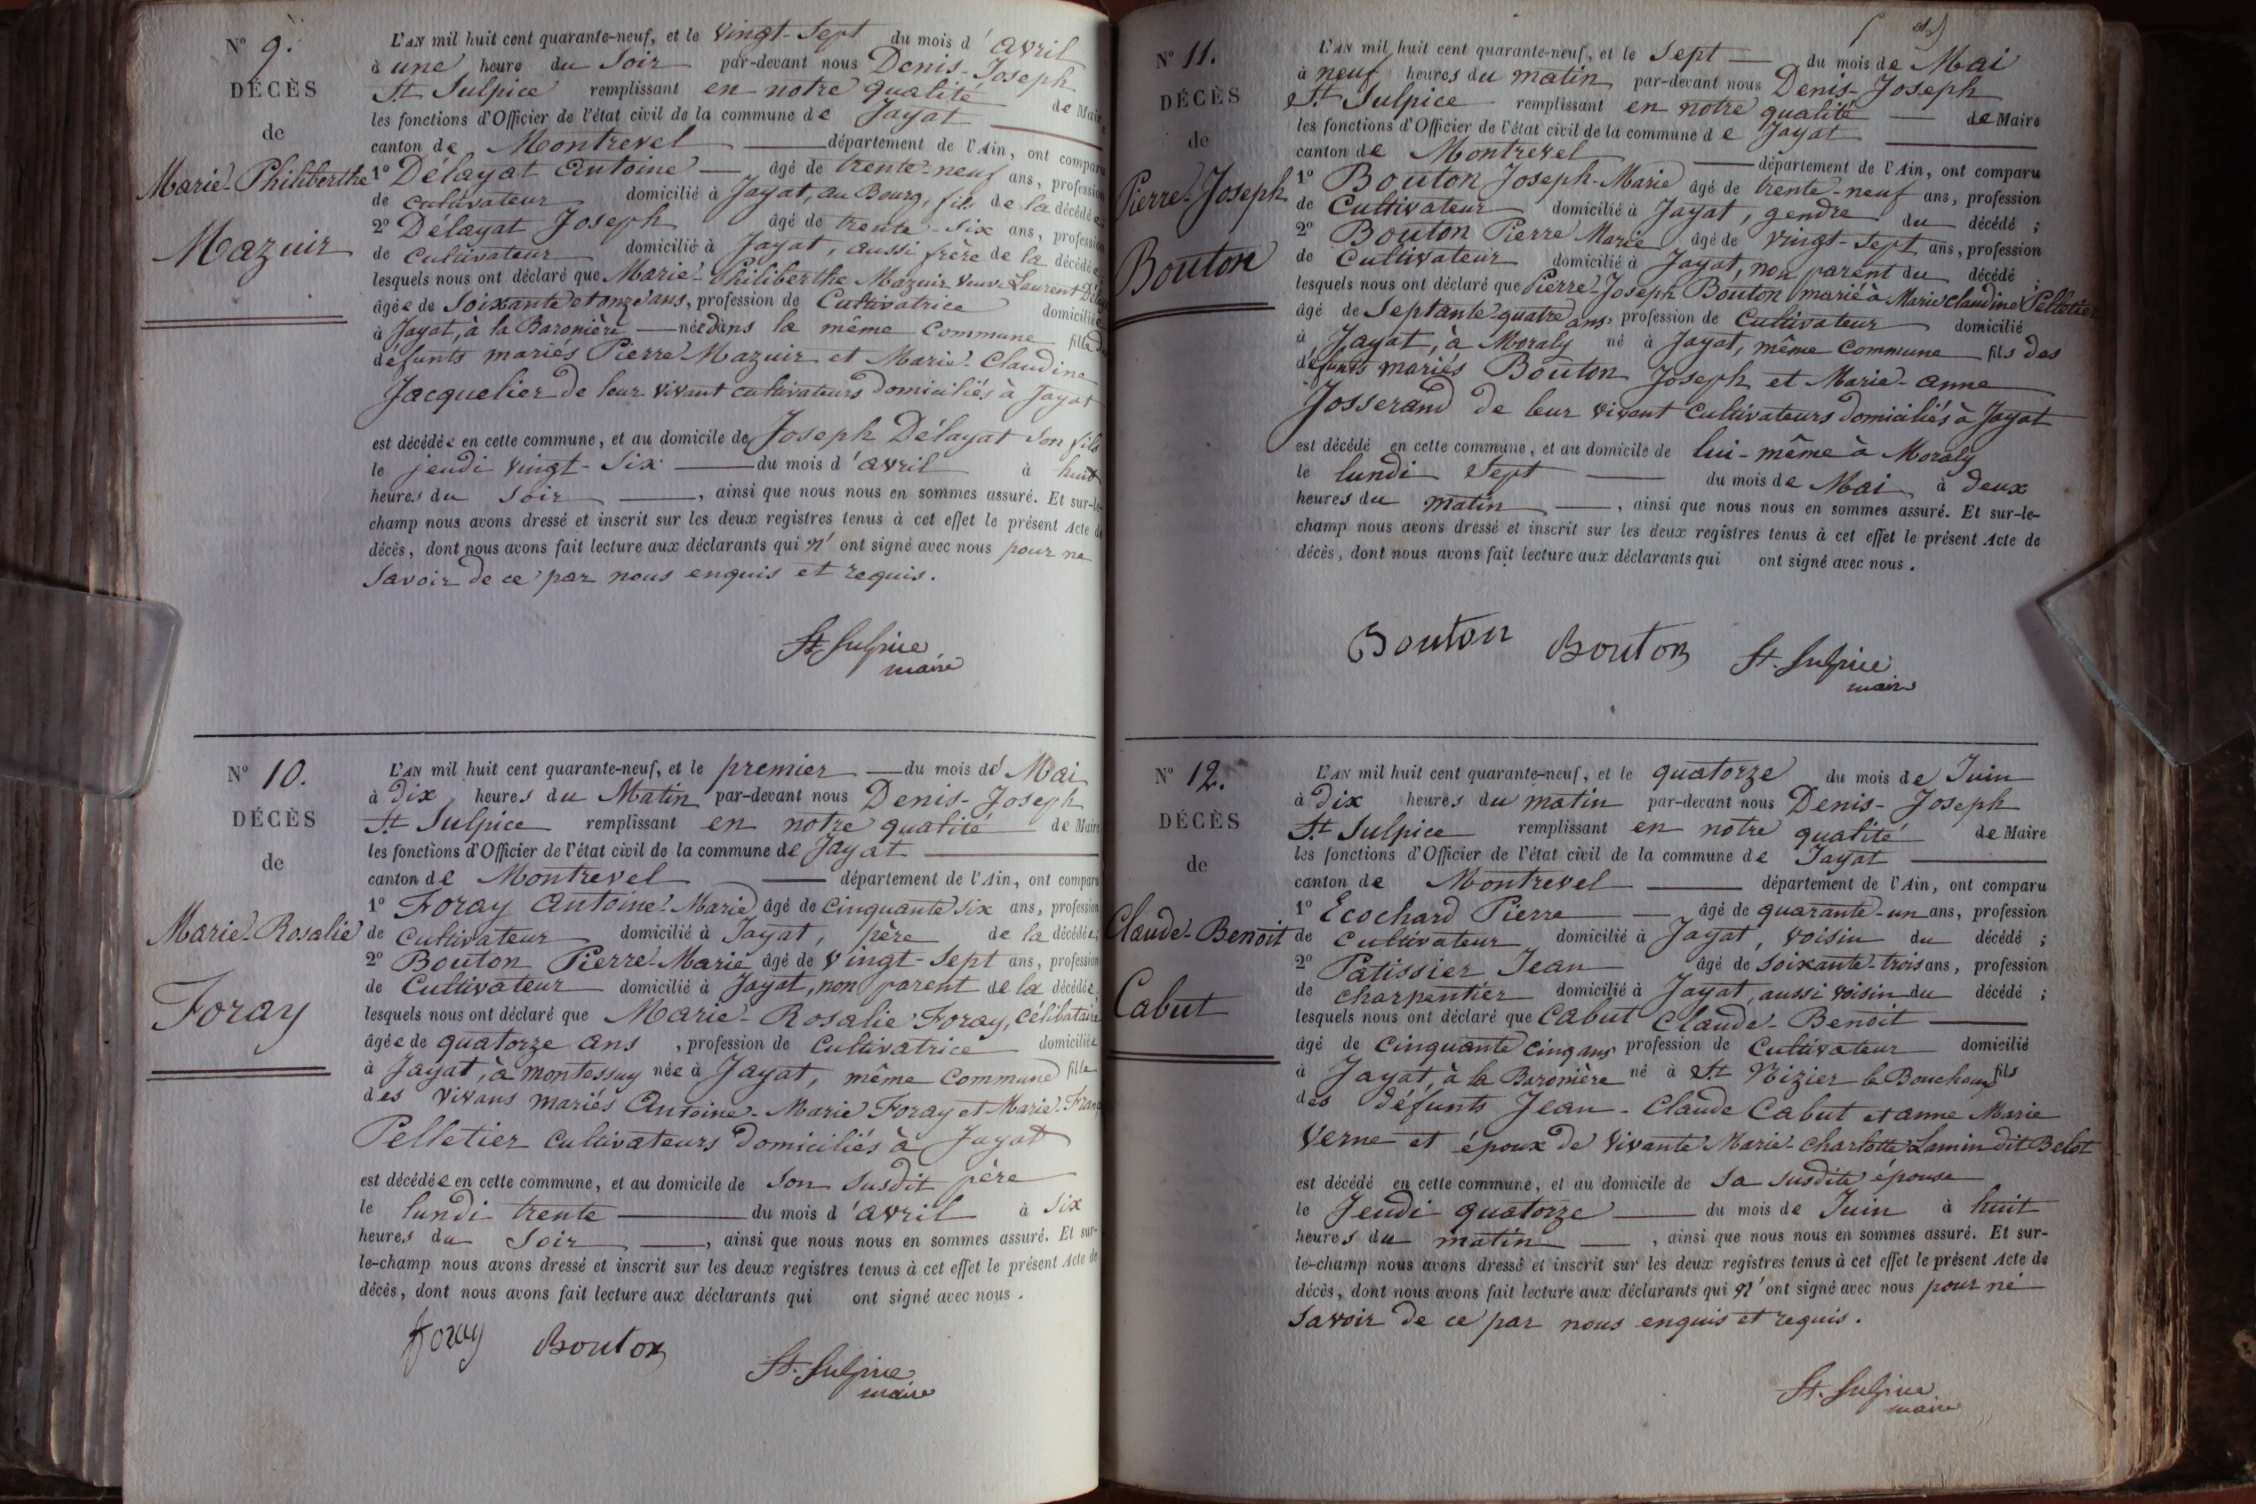 N° 9.
DÉCÈS
de
Marie-Philiberthe
Mazuir
L'AN mil huit cent quarante-neuf, et le vingt-sept du mois d'avril
à une heure du soir par-devant nous Denis-Joseph
St Sulpice remplissant en notre qualité de Maire
les fonctions d'Officier de l'état civil de la commune de Jayat
canton de Montrevel département de l'Ain, ont comparu
1° Délayat Antoine âgé de trente-neuf ans, profession
de cultivateur domicilié à Jayat, au Bourg, fils de la décédée
2° Délayat Joseph âgé de trente-six ans, profession
de cultivateur domicilié à Jayat, aussi frère de la décédée
lesquels nous ont déclaré que Marie-Philiberthe Mazuir veuve Laurent
âgée de soixante et onze ans, profession de Cultivatrice domiciliée
à Jayat, à la Baronière née dans la même commune fille
défunts mariés Pierre Mazuir et Marie-Claudine
Jacquelier de leur vivant cultivateurs domiciliés à Jayat
est décédée en cette commune, et au domicile de Joseph Délayat son fils
le jeudi vingt-six du mois d'avril à huit
heures du soir, ainsi que nous nous en sommes assuré. Et sur-le-
champ nous avons dressé et inscrit sur les deux registres tenus à cet effet le présent Acte de
décès, dont nous avons fait lecture aux déclarants qui n'ont signé avec nous pour ne
savoir de ce par nous enquis et requis.
St. Sulpice
maire
N° 10.
DÉCÈS
de
Marie-Rosalie
Foray
L'AN mil huit cent quarante-neuf, et le premier du mois de Mai
à dix heures du Matin par-devant nous Denis-Joseph
St Sulpice remplissant en notre qualité de Maire
les fonctions d'Officier de l'état civil de la commune de Jayat
canton de Montrevel département de l'Ain, ont comparu
1° Foray Antoine-Marie âgé de cinquante six ans, profession
de cultivateur domicilié à Jayat, père de la décédée;
2° Bouton Pierre-Marie âgé de vingt-sept ans, profession
de Cultivateur domicilié à Jayat, non parent de la décédée
lesquels nous ont déclaré que Marie-Rosalie Foray, célibataire
âgée de quatorze ans, profession de cultivatrice domiciliée
à Jayat, à montessuy née à Jayat, même commune fille
des vivans mariés Antoine-Marie Foray et Marie
Pelletier cultivateurs domiciliés à Jayat
est décédée en cette commune, et au domicile de son susdit père
le lundi trente du mois d'avril à six
heures du soir, ainsi que nous nous en sommes assuré. Et sur-
le-champ nous avons dressé et inscrit sur les deux registres tenus à cet effet le présent Acte de
décès, dont nous avons fait lecture aux déclarants qui ont signé avec nous.
Foray Bouton St. Sulpice
maire
N° 11.
DÉCÈS
de
Pierre-Joseph
Bouton
L'AN mil huit cent quarante-neuf, et le sept du mois de Mai
à neuf heures du matin par-devant nous Denis-Joseph
St Sulpice remplissant en notre qualité de Maire
les fonctions d'Officier de l'état civil de la commune de Jayat
canton de Montrevel département de l'Ain, ont comparu
1° Bouton Joseph-Marie âgé de trente-neuf ans, profession
de Cultivateur domicilié à Jayat, gendre du décédé;
2° Bouton Pierre Marie âgé de vingt-sept ans, profession
de Cultivateur domicilié à Jayat, non parent du décédé;
lesquels nous ont déclaré que Pierre-Joseph Bouton marié à Marie claudine Pelletier
âgé de Septante quatre ans, profession de cultivateur domicilié
à Jayat, à Moraly né à Jayat, même commune fils des
défunts mariés Bouton Joseph et Marie-Anne
Josserand de leur vivant cultivateurs domiciliés à Jayat
est décédé en cette commune, et au domicile de lui-même à Moraly
le lundi sept du mois de Mai à deux
heures du matin, ainsi que nous nous en sommes assuré. Et sur-le-
champ nous avons dressé et inscrit sur les deux registres tenus à cet effet le présent Acte de
décès, dont nous avons fait lecture aux déclarants qui ont signé avec nous.
Bouton Bouton St. Sulpice
maire
N° 12.
DÉCÈS
de
Claude-Benoit
Cabut
L'AN mil huit cent quarante-neuf, et le quatorze du mois de Juin
à dix heures du matin par-devant nous Denis-Joseph
St Sulpice remplissant en notre qualité de Maire
les fonctions d'Officier de l'état civil de la commune de Jayat
canton de Montrevel département de l'Ain, ont comparu
1° Ecochard Pierre âgé de quarante-un ans, profession
de cultivateur domicilié à Jayat, voisin du décédé;
2° Patissier Jean âgé de soixante-trois ans, profession
de charpentier domicilié à Jayat, aussi voisin du décédé;
lesquels nous ont déclaré que Cabut Claude-Benoit
âgé de cinquante cinq ans profession de cultivateur domicilié
à Jayat, à la Baronière né à St Nizier le Bouchoux fils
des défunts Jean-Claude Cabut et anne Marie
Verne et époux de vivante Marie-Charlotte Lamin dit Belot
est décédé en cette commune, et au domicile de sa susdite épouse
le Jeudi quatorze du mois de Juin à huit
heures du matin, ainsi que nous nous en sommes assuré. Et sur-
le-champ nous avons dressé et inscrit sur les deux registres tenus à cet effet le présent Acte de
décès, dont nous avons fait lecture aux déclarants qui n'ont signé avec nous pour ne
savoir de ce par nous enquis et requis.
St. Sulpice
maire